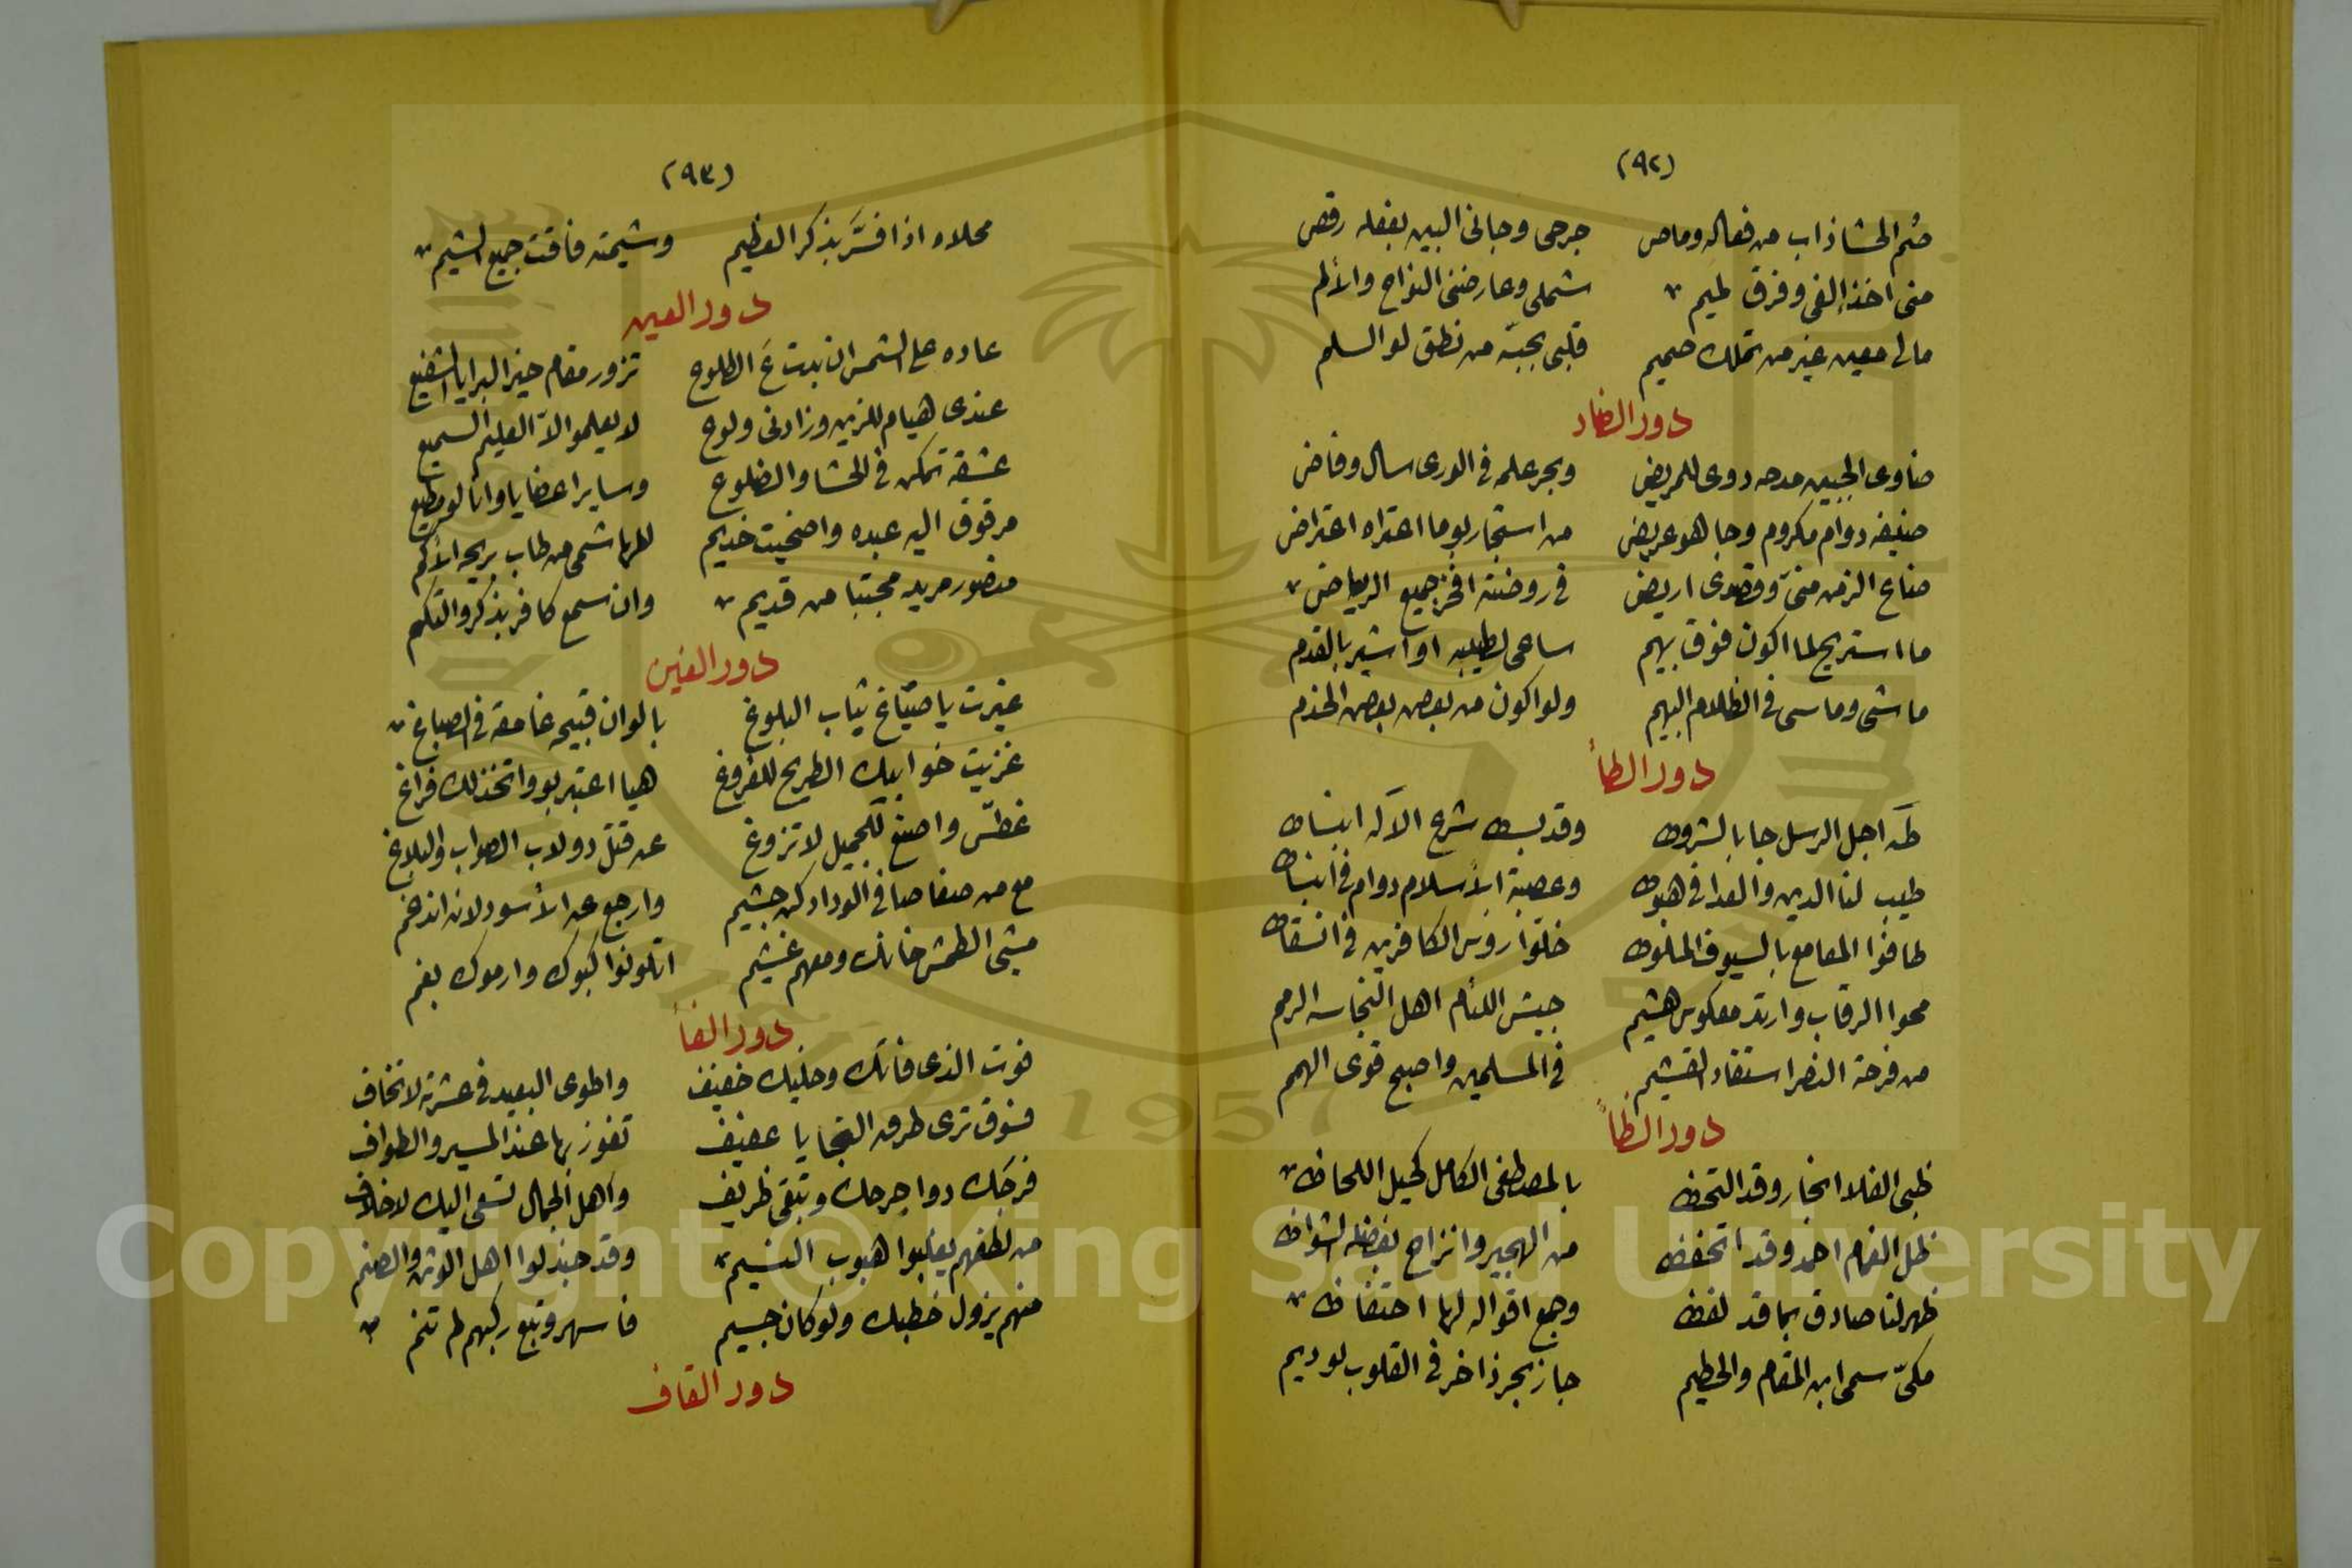 (٩٢)
صُم الحشا ذاب من فعاله وماص جرحى وجانى البين بفعله رقص
منى اخذ إلفى وفرق لميم شملى وعارضنى النواح والألم
مالى معين غير من تملك صميم قلبى بحبّه من نطق لو السلم
دور الضاد
ضاوى الجبين مدحه دوى للمريض وبحر علمه فى الورى سال وفاض
ضيفه دوام مكروم وجاهو عريض من استجار بو ما اعتراه اعتراض
ضاع الزمن منىّ وقصدى اريض فى روضته افخر جميع الرياض
ما استريح لما اكون فوق بهيم ساعى لطيبه او اشير بالقدم
ماشى وماسى فى الظلام البهيم ولو اكون من بعض بعض الخدم
دور الطأ
طه اجل الرسل جا بالشروط وقد بسط شرع الآله انبساط
طيب لنا الدين والعدا فى هبوط وعصبة الأسلام دوام فى انبساط
طافوا المعامع بالسيوف الملوط خلّوا روس الكافرين فى انسقاط
محوا الرقاب وارتد معكوس هشيم جيش اللئام اهل النجاسه الرمم
من فرحة النصر استفاد القشيم فى المسلمين واصبح قوى الهمم
دور الظأ
ظبى الفلا انجار وقد التحظ بالمصطفى الكامل كحيل اللحاظ
ظل الغمام احمد وقد اتحفظ من الهجير وانزاح بفضله الشواظ
ظهر لنا صادق بما قد لفظ وجمع اقواله لها احتفاظ
مكىّ سمى ابن المقام والحطيم جاز بحر ذاخر فى القلوب لو ديم
(٩٣)
محلاه اذا فسَّر بذكر العظيم وشيمته فاقت جميع الشيم
دور العين
عاده على الشمس ان بدت عَ الطلوع تزور مقام خير البرايا الشفيع
عندى هيام للزين وزادنى ولوع لا يعلمو الاّ العليم السميع
عشقه تمكن فى الحشا والضلوع وساير اعضايا وانا لو مطيع
مرقوق اليه عبده واضحيت خديم لطها شمى من طاب بريحه الأكم
منصور مريد مجتبا من قديم وان سمع كافر بذكرو التكم
دور الغين
غيرت يا صبّاغ ثياب البلوغ بالوان قبيحه غامقه فى الصباغ
غزيت خوابيك الطريح للفروغ هيا اعتبر بو واتخذ لك فراغ
غطّس واصبغ للجميل لا تزوغ عن قتل دولاب الصواب والبلاغ
مع من صفا صافى الوداد كن جشيم وارجع عن الأسود لانه اندغم
مشى الطمش خانك ومعهم غشيم اتلونوا كبوك وارموك بغم
دور الفأ
فوت الذى فاتك وخليك خفيف واطوى البعيد فى عشرته لا تخاف
فسوق ترى طرق النجا يا عفيف تفوز بها عند المسير والطواف
فرحك دوا جرحك وتبقى ظريف واهل الجمال تسعى اليك لا خلاف
من لطفهم يغلبوا هبوب النسيم وقد جندلوا اهل الوثن والصنم
منهم يزول خطبك ولو كان جسيم فاسهر وتبع ركبهم لم تنم
دور القاف
Copyright © King Saud University
1957